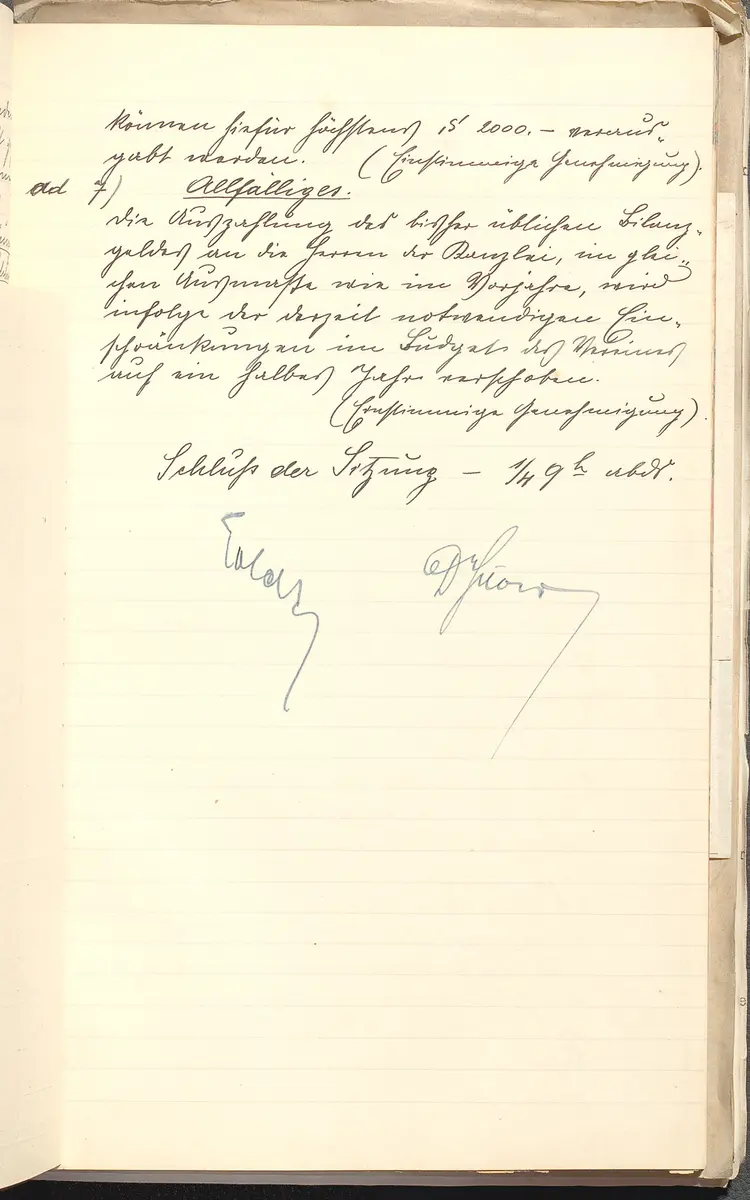 können hiefür höchstens S 2000.– veraus-
gabt werden. (Einstimmige Genehmigung).
ad 7) Allfälliges.
Die Auszahlung des bisher üblichen Bilanz-
geldes an die Herren der Kanzlei, im glei-
chen Ausmaße wie im Vorjahre, wird
infolge der derzeit notwendigen Ein-
schränkungen im Budget des Vereines
auf ein halbes Jahr verschoben.
(Einstimmige Genehmigung).
Schluß der Sitzung – 1/4 9h abds.